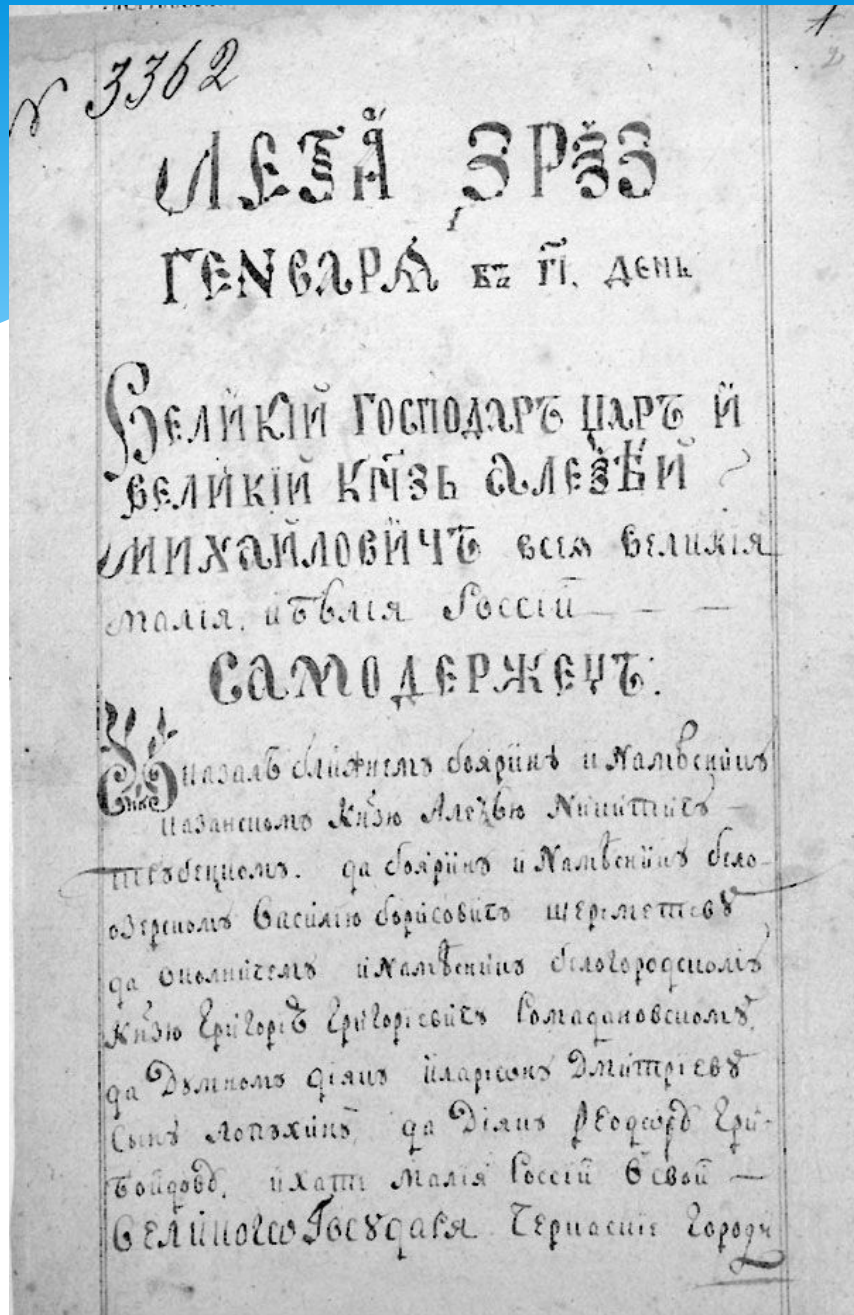 № 3362
1
2
ЛЕТА ЗРЗЗ
ГЕНВАРѦ въ гі. день
Великій господаръ царъ й
великій кнзь Алеѯѣй
Михайловйчъ всея великія
малія, и бѣлія Россій — —
САМОДЕРЖЕЦЪ:
Указалъ ближнемъ бояринꙋ и Намѣсникꙋ
казанскомъ Кнзю Алеѯѣю Никитичъ —
трꙋбецкомъ. да бояринꙋ и Намѣсникꙋ бело-
озерскомъ Василію борисовичъ шереметевꙋ
да околничемъ и Намѣсникꙋ белогородскомꙋ
Кнзю Григорію Григоріевичъ Ромадановскомꙋ,
да Думномъ діякꙋ Иларіѡнꙋ Дмитріевꙋ
сынꙋ лопꙋхинꙋ, да Діякꙋ Ѳеодѡрꙋ Гри-
боидовꙋ, ихати Малія Россій Всвой —
Великогѡ Госꙋдаря Черкаскіе Городи